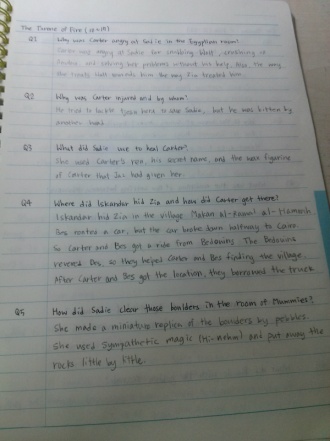 The Throne of Fire (
Q1 Why was Carter angry at Sadie in the Egyptian room?
Carter was angry at Sadie for
and solving her problems without his help. Also the way
she treats Walt reminds him the way Zia treated him.
Q2 Why was Carter injured and by whom?
He tried to tackle to save Sadie, but he was bitten by
Q3 What did Sadie use to heal Carter?
She used Carter's ren, his secret name, and the wax figurine
of Carter that Jaz had given her.
Q4 Where did Iskandar hid Zia and how did Carter get there?
Iskandar hid Zia in the village Makan al-Raml al-Hamrah
Bes rented a car, but the car broke down halfway to Cairo
So Carter and Bes got a ride from Bedouins. The Bedouins
reveres Bes, so they helped Carter and Bes finding the village.
After Carter and Bes got the location, they borrowed the truck
Q5 How did Sadie clear those boulders in the room of Mummies?
She made a miniature replica of the boulders by pebbles.
She used Sympathetic magic (Hi-nehm) and put away the
rocks little by little.